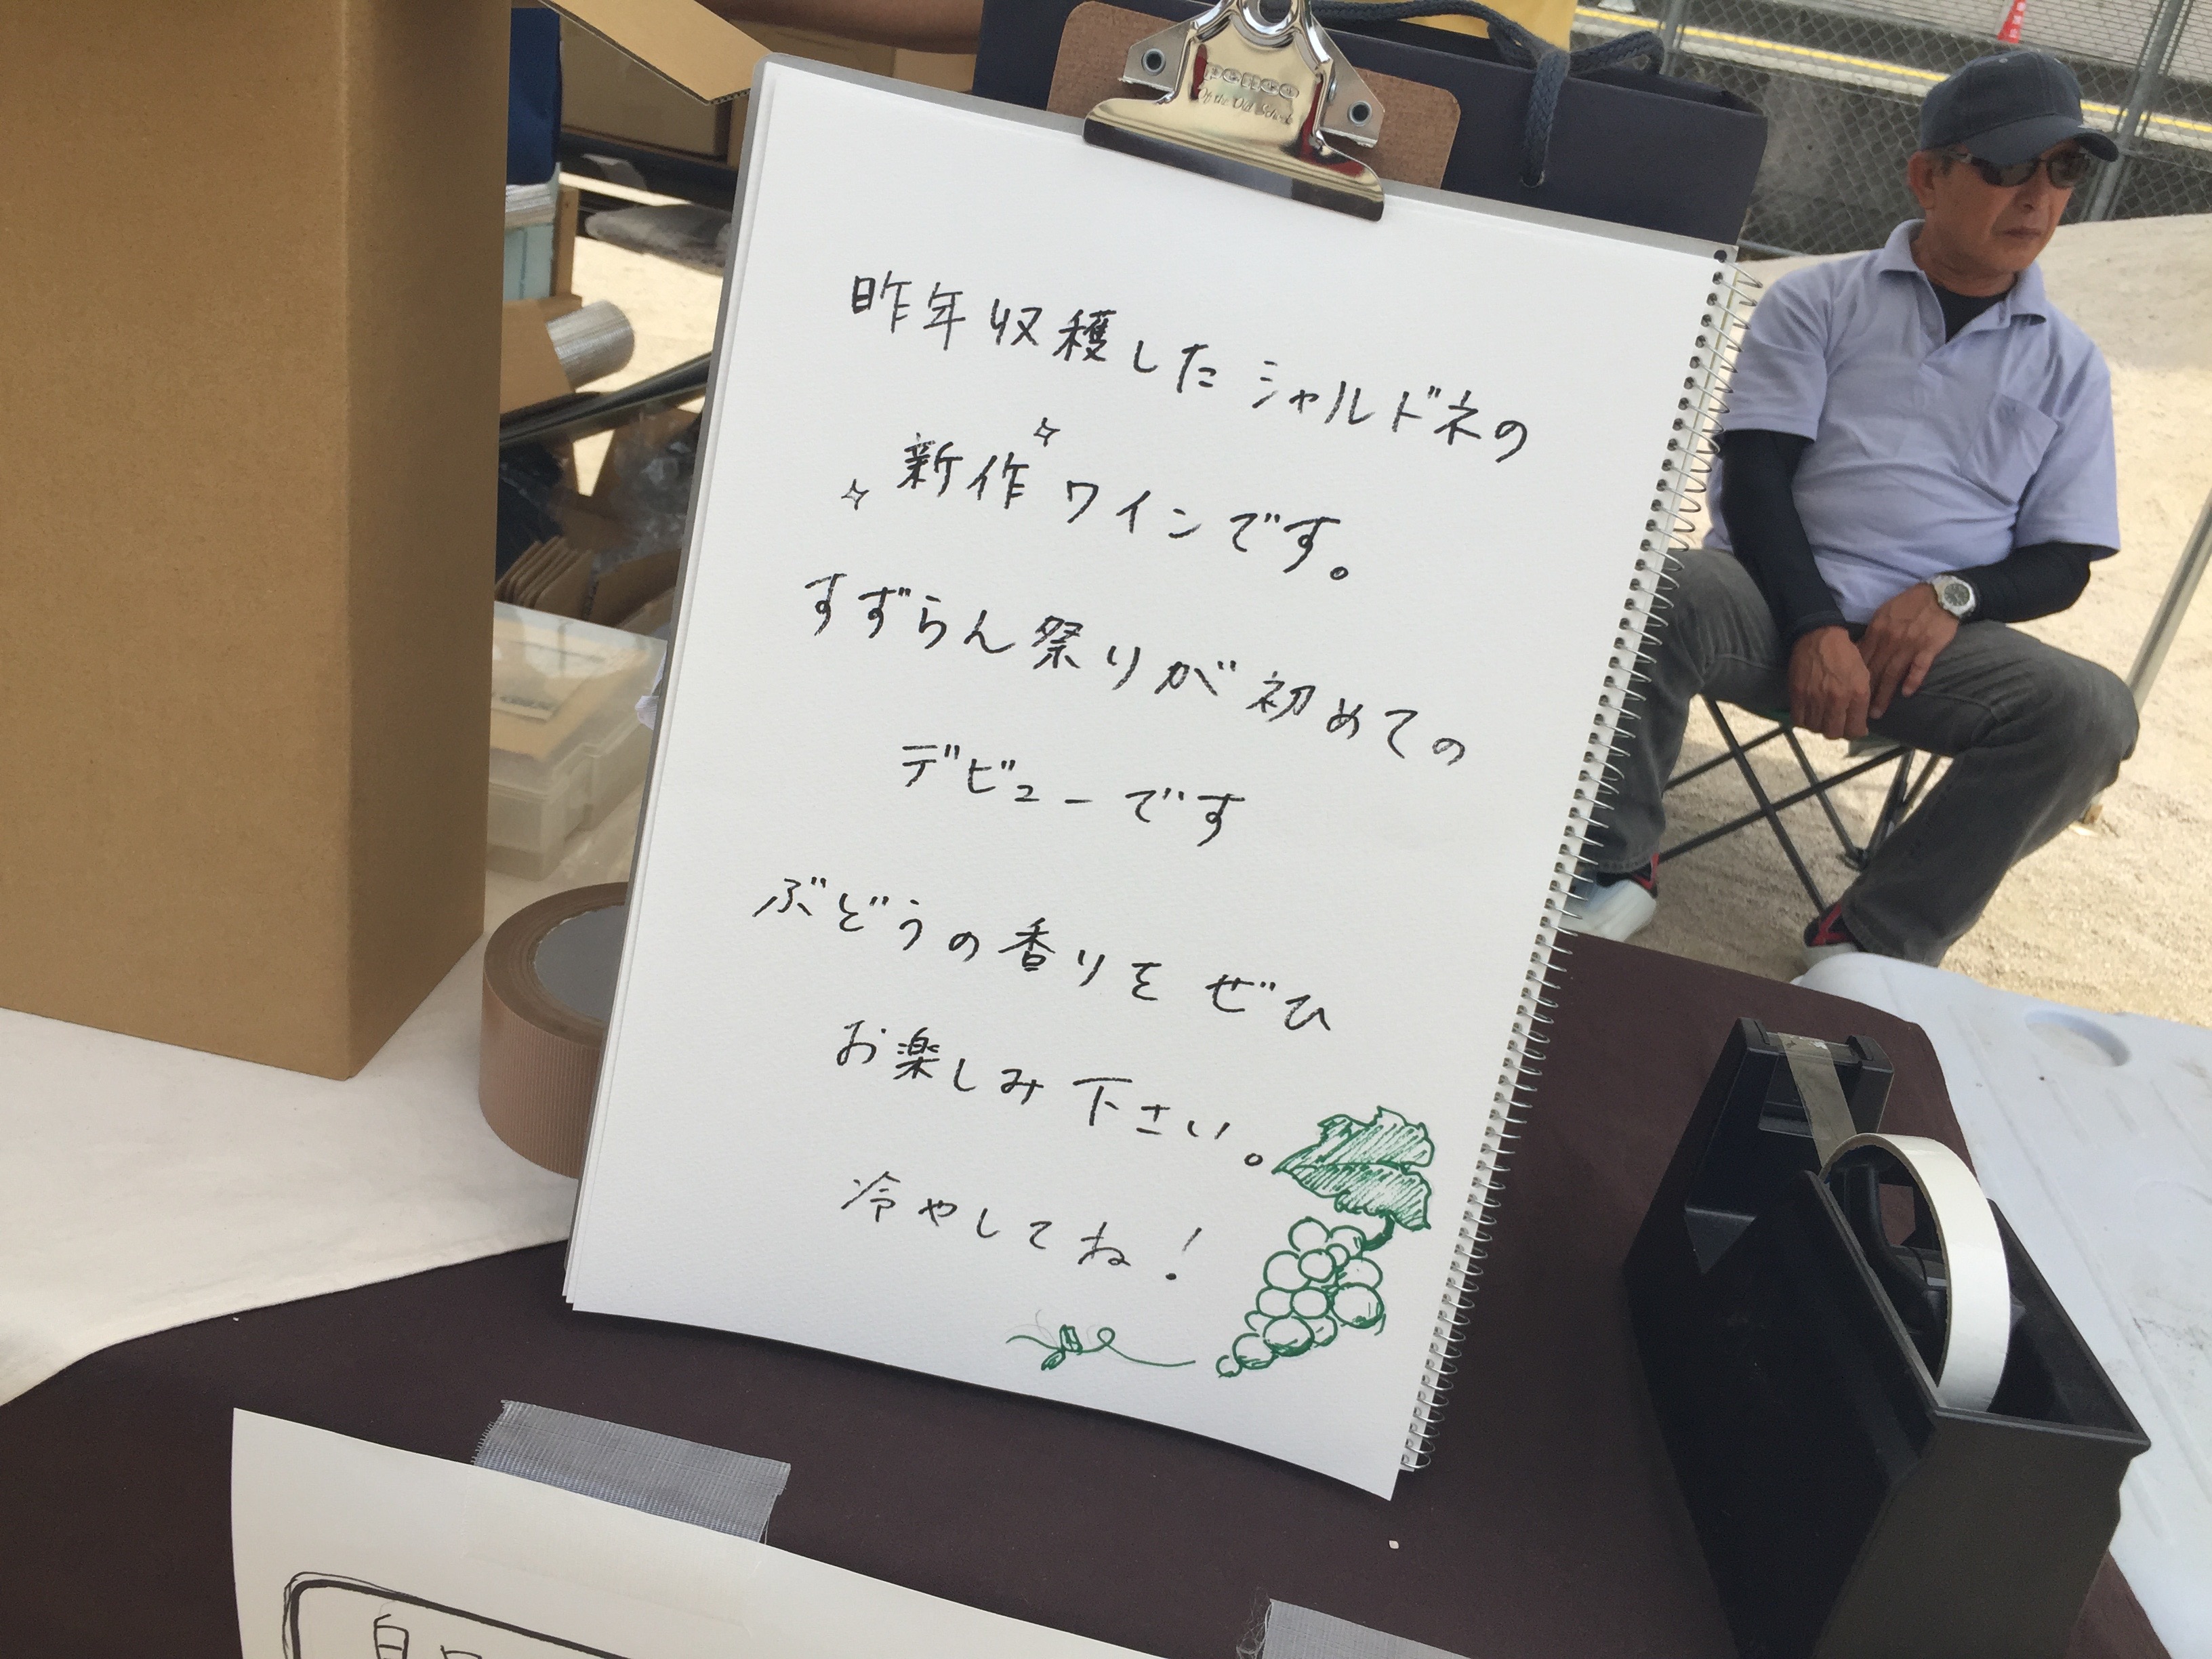 penco
Of the Old School
昨年収穫したシャルドネの
新作ワインです。
すずらん祭りが初めての
デビューです
ぶどうの香りをぜひ
お楽しみ下さい。
冷やしてね!